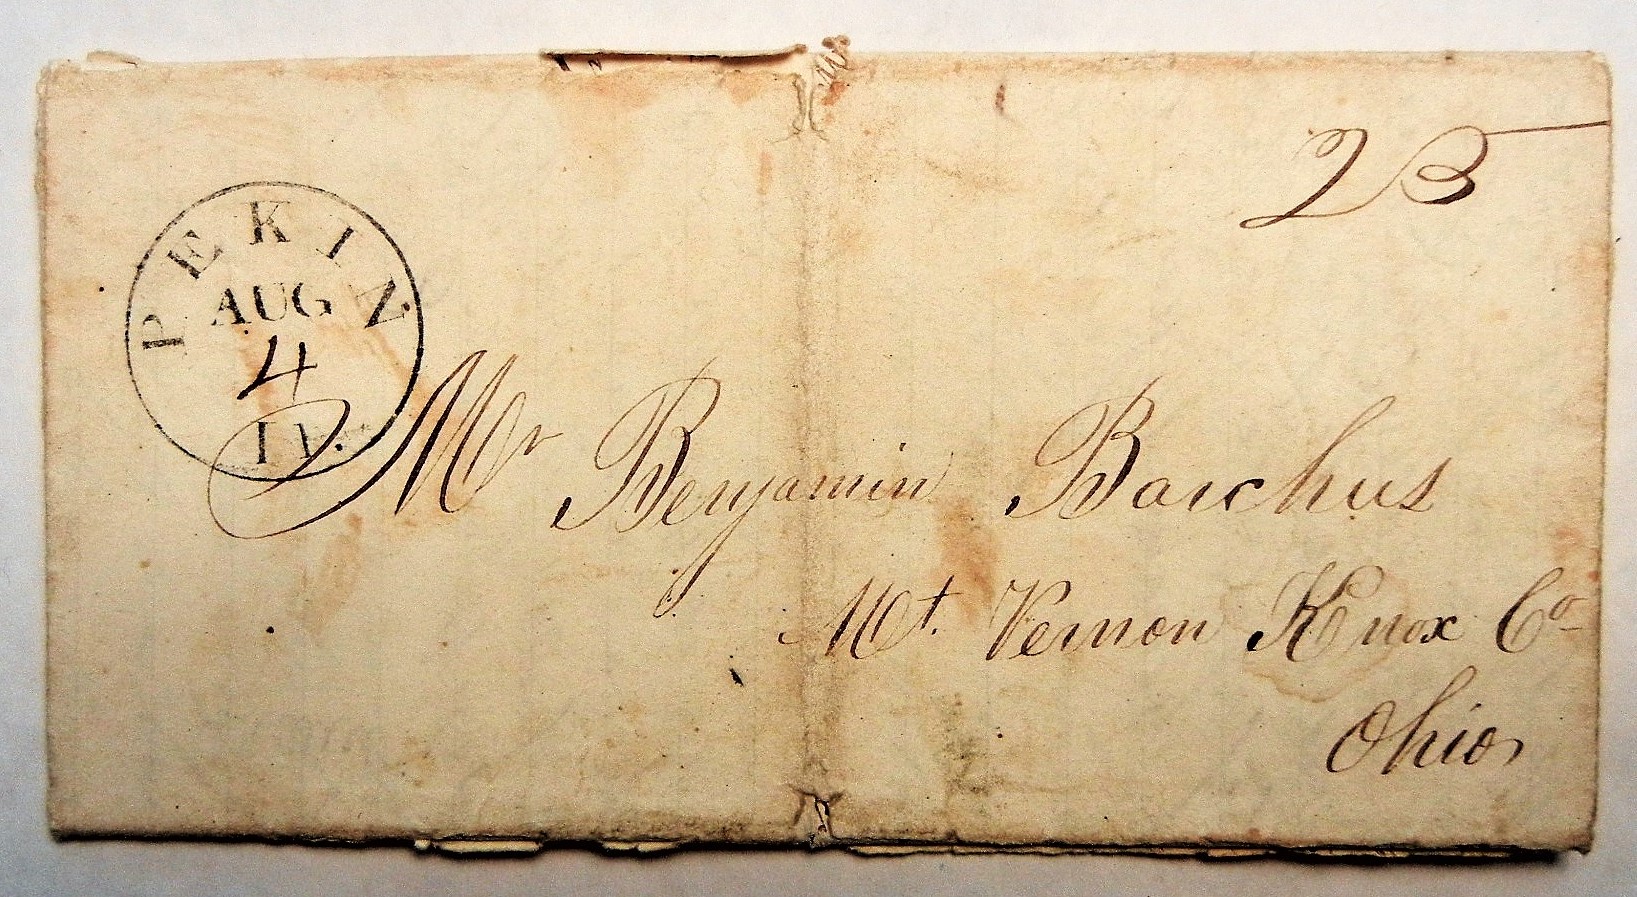 PEKIN
AUG
4
Il.
25
Mr Benjamin Barchus
Mt. Vernon Knox Co
Ohio